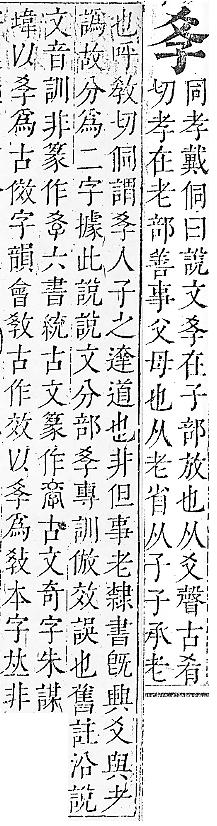 𡥉
同孝戴侗曰說文𡥉在子部放也从爻聲古肴
切孝在老部善事父母也从老省从子子承老
也呼敎切侗謂𡥉人子之達道也非但事老隸書旣興爻與耂
譌故分爲二字據此說說文分部𡥉專訓倣效誤也舊註沿說
文音訓非篆作𡥉六書統古文篆作𡦗古文奇字朱謀
㙔以𡥉爲古傚字韻會敎古作效以𡥉爲敎本字𠀤非